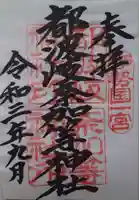 奉拝
一宮
都波岐奈加等神社
令和三年九月